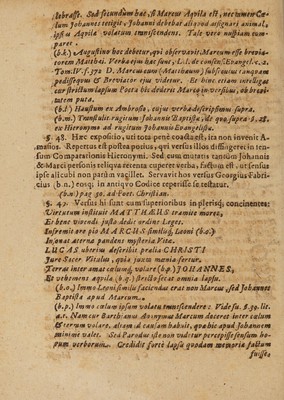 lebrasse. Sed secundum hæc, si Marcus Aqvila est, nec inmerito Cælum Johannes tetigit, Johanni debebat aliqvod assignari animal,
ipsius Aqvilæ volatum transcendens. Tale vero nusqvam comparet.
(b.k.) Augustino hæc debetur, qvi observavit Marcum esse breviatorem Matthæi. Verba ejus hæc sunt, L.I. de consens. Evangel. c. 2.
Tom. IV. f. 372 D. Marcus eum (Matthæum) subsecutus tanquam
pedissequus & Breviator ejus videtur. Et hinc etiam intelligas
cur strictum lapsum Poeta bis dederit Marco in versibus, ob brevitatem puta.
(b.l.) Haustum ex Ambrosio, cujus verba descripsimus supra.
(b.m.) Transtulit rugitum Johannis Baptistæ, de quo supra §. 28.
ex Hieronymo ad rugitum Johannis Evangelistæ.
§. 48. Hæc expositio, uti tota penè coacta est, ita non invenit Amasios. Repertus est postea pocius, qvi versus illos diffingeret in sensum Comparationis Hieronymi. Sed cum mutatis tantùm Johannis
& Marci personis reliqva retenta cuperet verba, factum est, ut sensus
ipse alicubi non parùm vacillet. Servavit hos versus Georgius Fabricius (b n.) eosq; in antiqvo Codice reperisse se testatur.
(b.n.) pag 30. ad Poet. Christian.
§. 49. Versus hi sunt cum superioribus in plerisq; concinentes:
Virtutum instituit MATTHÆUS tramite mores,
Et bene vivendi justo dedit ordine leges.
Infremit ore pio MARCUS similisq; Leoni (b.o.)
Insonat æterna pandens mysteria Vitæ.
LUCAS uberius describit prælia CHRISTI
Jure Sacer Vitulus, qvia juxta mœnia fertur.
Terras inter amat cœlumq; volare (b.p.) JOHANNES,
Et vehemens aqvila, (b.q.) stricto secat omnia lapsu.
(b.o.) Immo Leoni similis faciendus erat non Marcus, sed Johannes
Baptista apud Marcum.
(b.p.) Immo cœlum ipsum volatu transcendere: Videsis. §. 30. lit.
a.t. Nam cur Barthianus Anonymus Marcum doceret inter cælum
& terram volare, altam id causam habuit, qvæ hic apud Johannem
minime valet. Sed Parodus iste non videtur percepisse sensum bonum verborum. Credidit forte lapsu quodam memoriæ factum
fuisse,